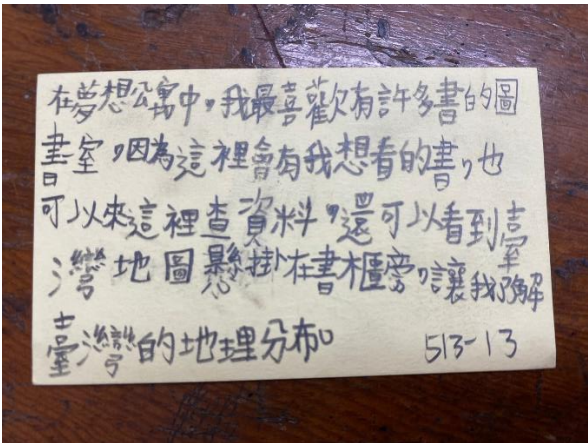 在夢想公寓中，我最喜歡有許多書的圖
書室，因為這裡會有我想看的書，也
可以來這裡查資料，還可以看到臺
灣地圖懸掛在書櫃旁，讓我了解
臺灣的地理分布。 513-13